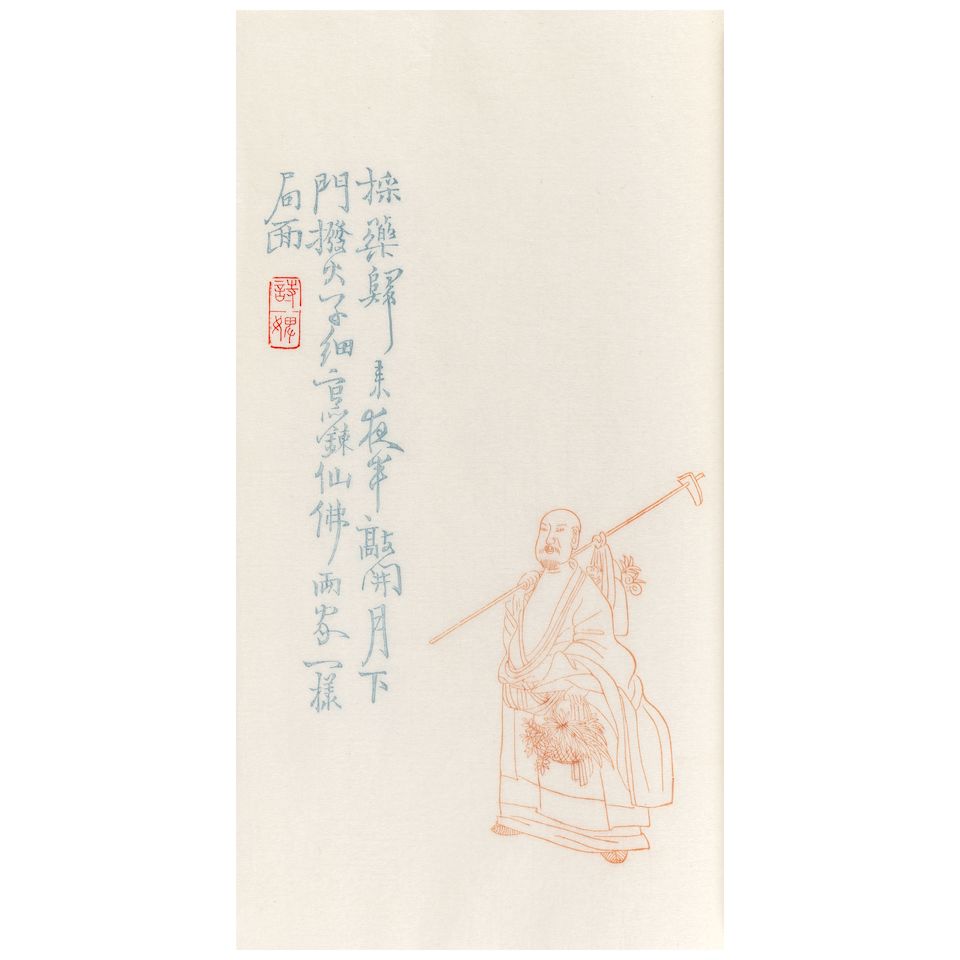 採藥歸來夜半敲開月下
門撥火子細烹鍊仙佛兩家一樣
局面
詩婢